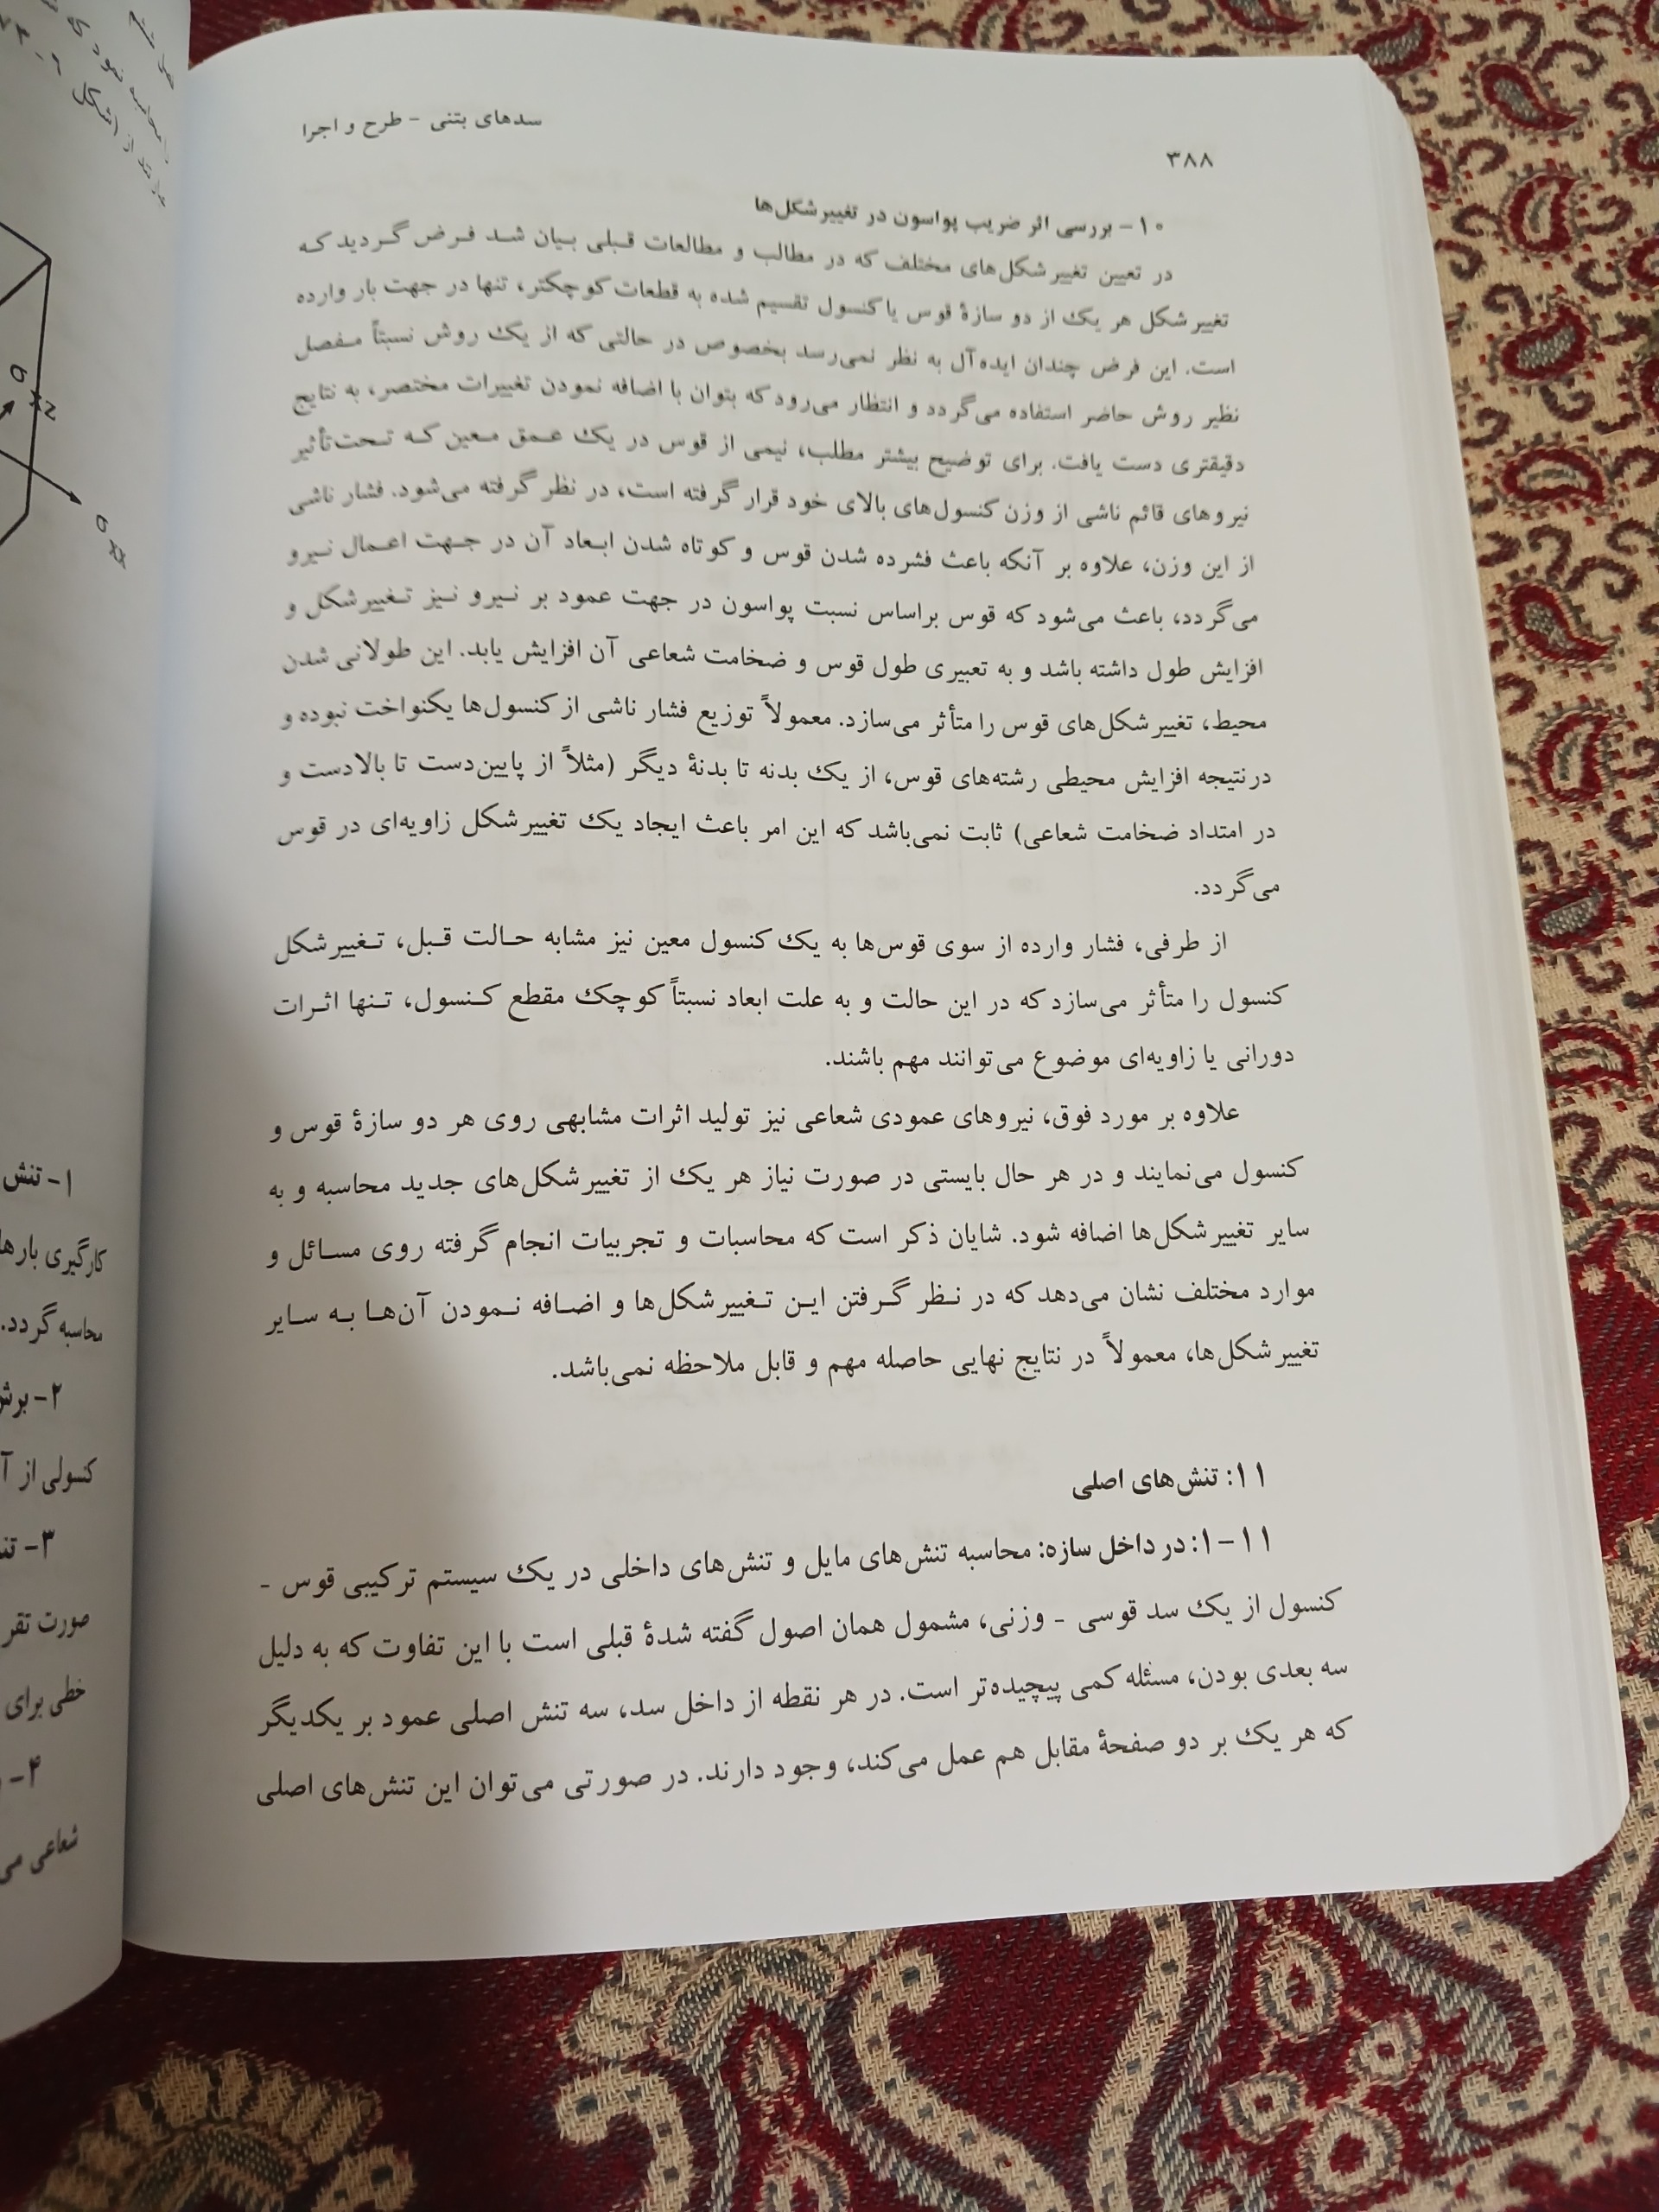 سدهای بتنی - طرح و اجرا
۳۸۸
۱۰- بررسی اثر ضریب پواسون در تغییرشکل‌ها
در تعیین تغییرشکل‌های مختلف که در مطالب و مطالعات قبلی بیان شد فرض گردید که
تغییرشکل هر یک از دو سازهٔ قوس یا کنسول تقسیم شده به قطعات کوچکتر، تنها در جهت بار وارده
است. این فرض چندان ایده‌آل به نظر نمی‌رسد بخصوص در حالتی که از یک روش نسبتاً مفصل
نظیر روش حاضر استفاده می‌گردد و انتظار می‌رود که بتوان با اضافه نمودن تغییرات مختصر، به نتایج
دقیقتری دست یافت. برای توضیح بیشتر مطلب، نیمی از قوس در یک عمق معین که تحت‌تأثیر
نیروهای قائم ناشی از وزن کنسول‌های بالای خود قرار گرفته است، در نظر گرفته می‌شود. فشار ناشی
از این وزن، علاوه بر آنکه باعث فشرده شدن قوس و کوتاه شدن ابعاد آن در جهت اعمال نیرو
می‌گردد، باعث می‌شود که قوس براساس نسبت پواسون در جهت عمود بر نیرو نیز تغییرشکل و
افزایش طول داشته باشد و به تعبیری طول قوس و ضخامت شعاعی آن افزایش یابد. این طولانی شدن
محیط، تغییرشکل‌های قوس را متأثر می‌سازد. معمولاً توزیع فشار ناشی از کنسول‌ها یکنواخت نبوده و
درنتیجه افزایش محیطی رشته‌های قوس، از یک بدنه تا بدنهٔ دیگر (مثلاً از پایین‌دست تا بالادست و
در امتداد ضخامت شعاعی) ثابت نمی‌باشد که این امر باعث ایجاد یک تغییرشکل زاویه‌ای در قوس
می‌گردد.
از طرفی، فشار وارده از سوی قوس‌ها به یک کنسول معین نیز مشابه حالت قبل، تغییرشکل
کنسول را متأثر می‌سازد که در این حالت و به علت ابعاد نسبتاً کوچک مقطع کنسول، تنها اثرات
دورانی یا زاویه‌ای موضوع می‌توانند مهم باشند.
علاوه بر مورد فوق، نیروهای عمودی شعاعی نیز تولید اثرات مشابهی روی هر دو سازهٔ قوس و
کنسول می‌نمایند و در هر حال بایستی در صورت نیاز هر یک از تغییرشکل‌های جدید محاسبه و به
سایر تغییرشکل‌ها اضافه شود. شایان ذکر است که محاسبات و تجربیات انجام گرفته روی مسائل و
موارد مختلف نشان می‌دهد که در نظر گرفتن این تغییرشکل‌ها و اضافه نمودن آن‌ها به سایر
تغییرشکل‌ها، معمولاً در نتایج نهایی حاصله مهم و قابل ملاحظه نمی‌باشد.
۱۱: تنش‌های اصلی
۱۱-۱: در داخل سازه: محاسبه تنش‌های مایل و تنش‌های داخلی در یک سیستم ترکیبی قوس -
کنسول از یک سد قوسی - وزنی، مشمول همان اصول گفته شدهٔ قبلی است با این تفاوت که به دلیل
سه بعدی بودن، مسئله کمی پیچیده‌تر است. در هر نقطه از داخل سد، سه تنش اصلی عمود بر یکدیگر
که هر یک بر دو صفحهٔ مقابل هم عمل می‌کند، وجود دارند. در صورتی می‌توان این تنش‌های اصلی
۱- تنش
کارگیری بارها
محاسبه گردد.
۲- برش
کنسولی از آ
۳- تنـ
صورت تقر
خطی برای
۴-
شعاعی می